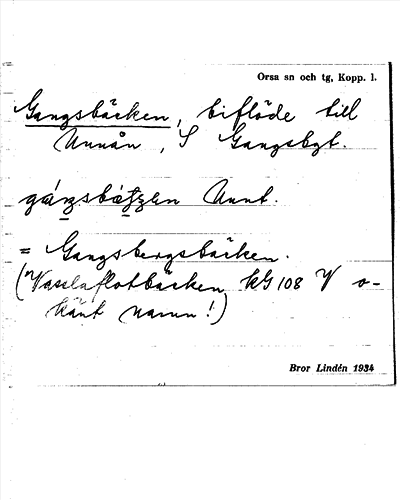 Orsa sn och tg, Kopp. l.
Gangsbäcken, biflöde till
Unnån, S Gangsbgt.
Unnt.
= Gangsbergsbäcken.
("Vasslaflotbäcken kG 108 V o-
känt namn!)
Bror Lindén 1934